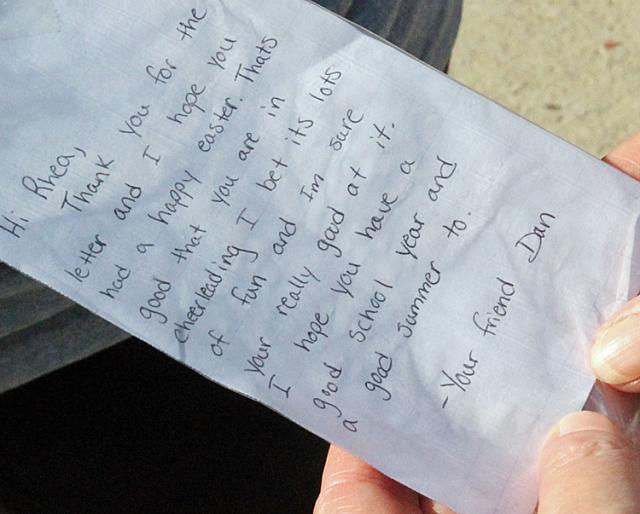 Hi Rhea,
Thank you for the
letter and I hope you
had a happy easter. Thats
good that you are in
cheerleading I bet its lots
of fun and Im sure
your really good at it.
I hope you have a
good school year and
a good summer to.
-Your friend Dan